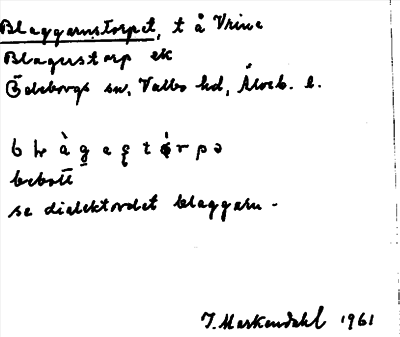 Blaggarnstorpet, t å Vrine
Blagerstorp ek
Ödeborgs sn, Valbo hd, Älvsb. l.
bebott
se dialektordet blaggarn.
J. Markendahl 1961